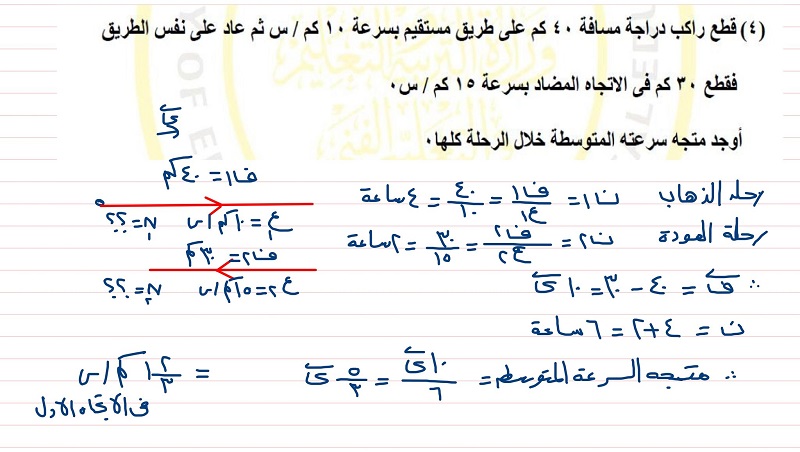 (٤) قطع راكب دراجة مسافة ٤٠ كم على طريق مستقيم بسرعة ١٠ كم / س ثم عاد على نفس الطريق
فقطع ٣٠ كم فى الاتجاه المضاد بسرعة ١٥ كم / س٠
أوجد متجه سرعته المتوسطة خلال الرحلة كلها٠
ى
ف١ = ٤٠ كم
رحلة الذهاب ن١ = ف١/ع١ = ٤٠/١٠ = ٤ ساعة
ع١ = ١٠ كم/س ن١ = ؟؟
رحلة العودة ن٢ = ف٢/ع٢ = ٣٠/١٥ = ٢ ساعة
ف٢ = ٣٠ كم
ع٢ = ١٥ كم/س ن٢ = ؟؟
∴ ف = ٤٠ − ٣٠ = ١٠ ى
ن = ٤ + ٢ = ٦ ساعة
∴ متجه السرعة المتوسطة = ١٠ ى/٦ = ٥/٣ ى
= ١ ٢/٣ كم/س
فى الاتجاه الاول